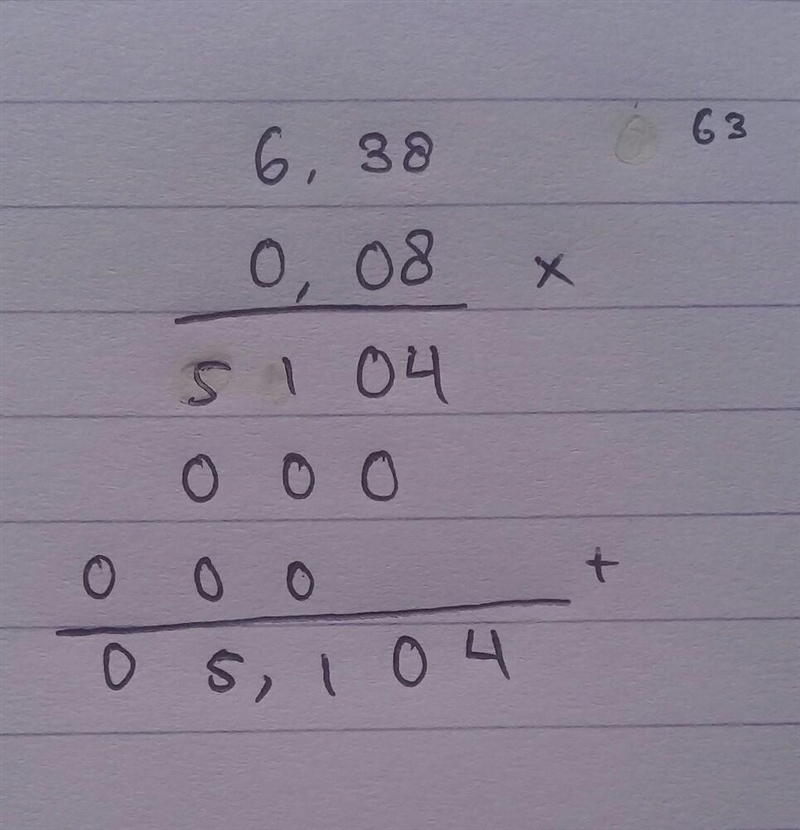 63
6,38
0,08 ×
5104
000
000 +
05,104